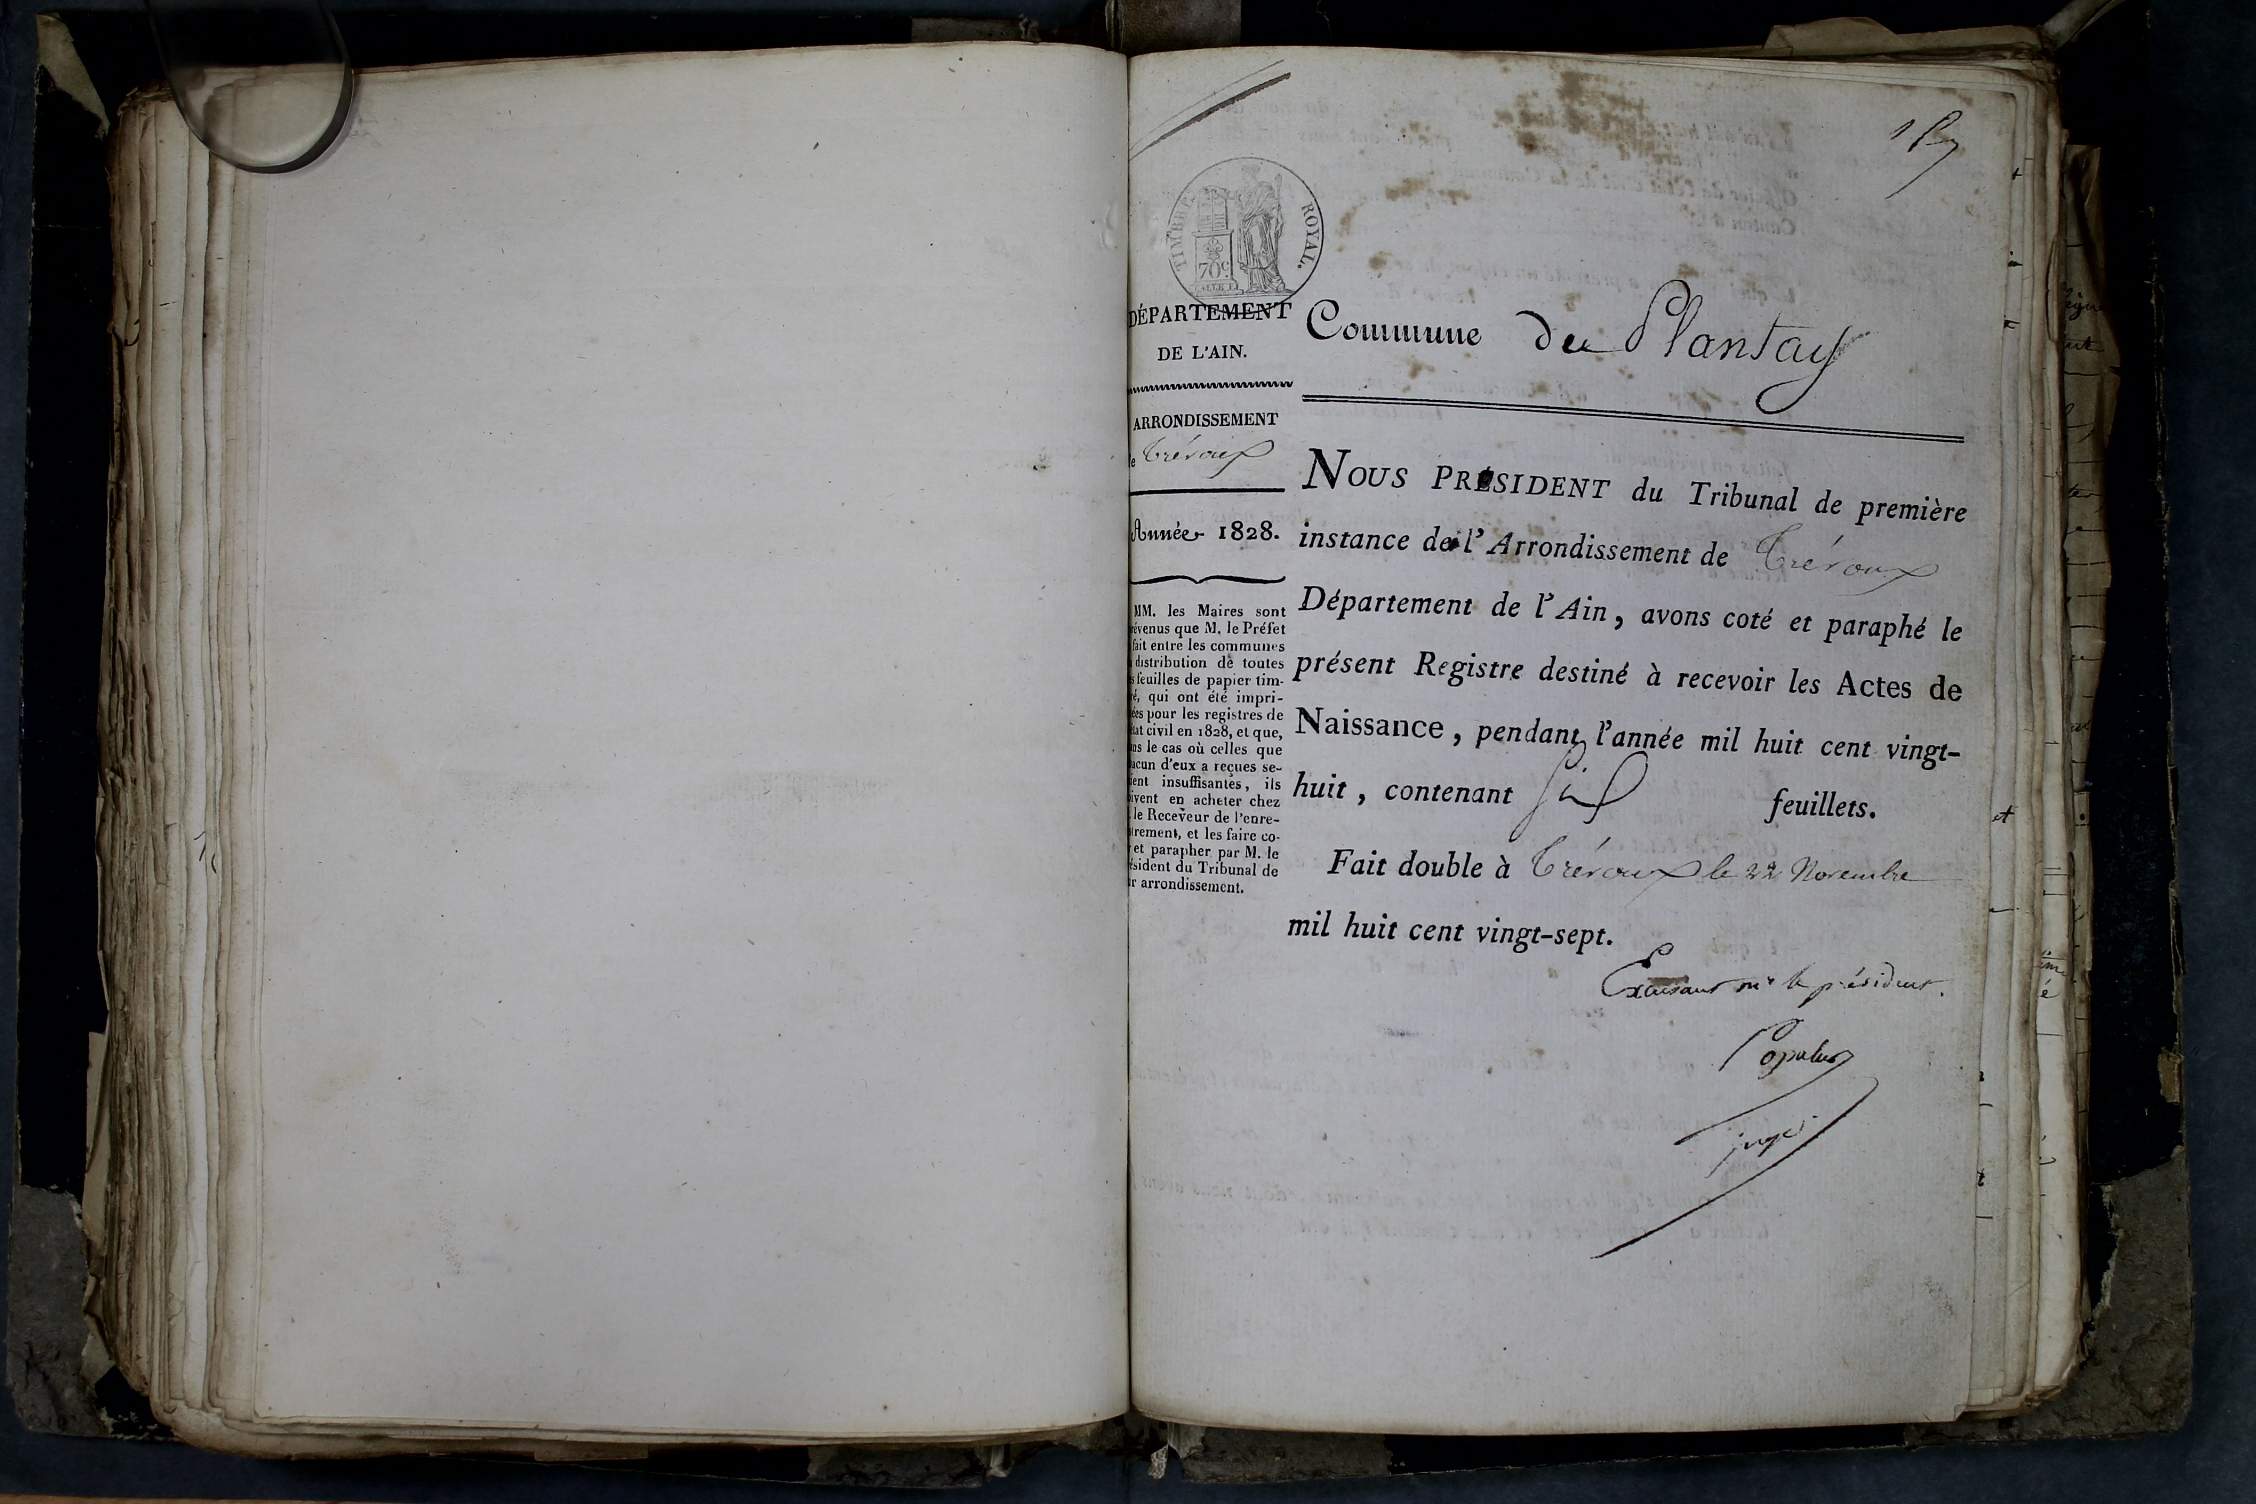 TIMBRE ROYAL.
70c
DÉPARTEMENT
DE L'AIN.
ARRONDISSEMENT
de Trévoux
Année 1828.
MM. les Maires sont
prévenus que M. le Préfet
fait entre les communes
distribution de toutes
feuilles de papier tim-
qui ont été impri-
pour les registres de
civil en 1828, et que,
le cas où celles que
d'eux a reçues se-
insuffisantes, ils
en acheter chez
le Receveur de l'enre-
et les faire co-
et parapher par M. le
Président du Tribunal de
arrondissement.
Commune du Plantay
NOUS PRÉSIDENT du Tribunal de première
instance de l'Arrondissement de Trévoux
Département de l'Ain, avons coté et paraphé le
présent Registre destiné à recevoir les Actes de
Naissance, pendant l'année mil huit cent vingt-
huit, contenant six feuillets.
Fait double à Trévoux le 22 Novembre
mil huit cent vingt-sept.
Excusant mr le président.
Populus
juge